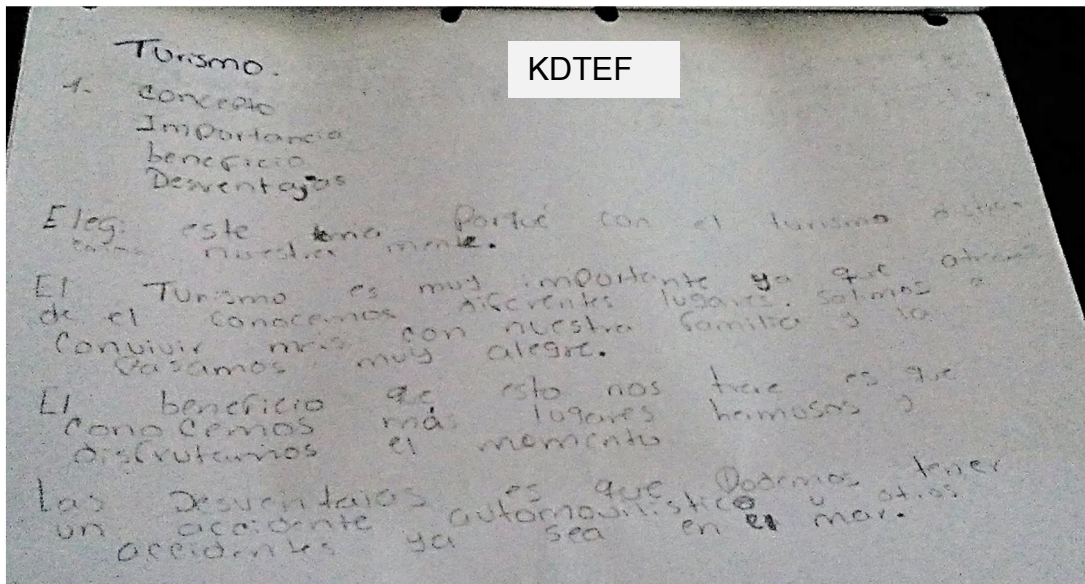 Turismo.
KDTEF
1. concepto
Importancia
beneficio
Desventajas
Elegi este tema Porque con el turismo
nuestra mente.
El Turismo es muy importante ya que atraves
de el conocemos diferentes lugares. salimos a
Convivir más con nuestra familia y la
Pasamos muy alegre.
El beneficio que esto nos trae es que
conocemos más lugares hermosos y
disfrutamos el momento
Las Desventajas es que Podemos tener
un accidente automovilistico u otros
accidentes ya sea en el mar.